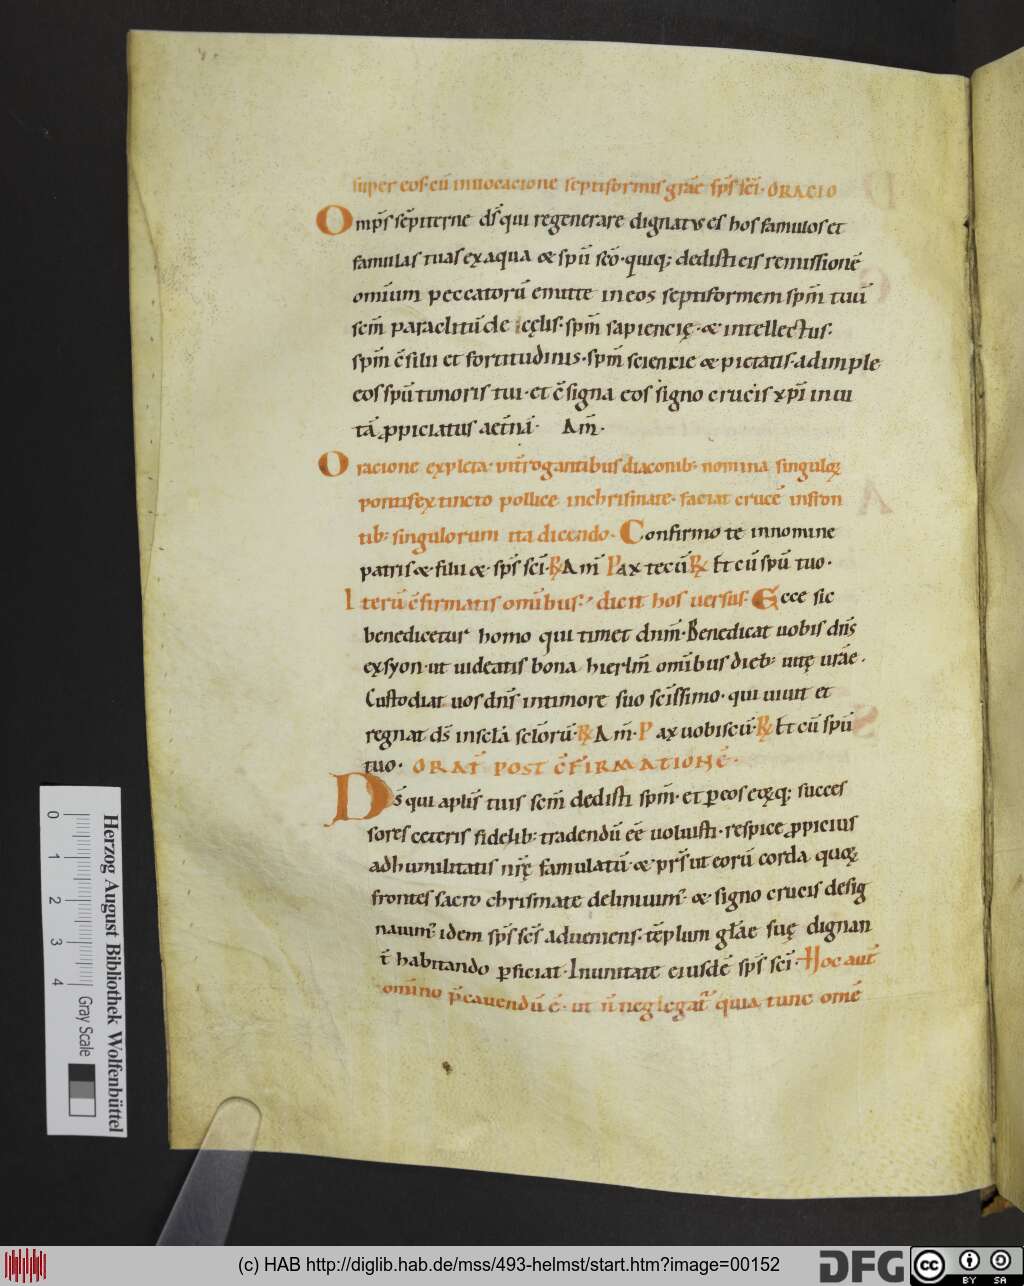 super eos cū inuocacione septiformis grāe sp̄s sc̄i · ORACIO
Omp̄s sēpiterne d̄s qui regenerare dignatus es hos famulos et
famulas tuas ex aqua & spū sc̄o · quiq; dedisti eis remissionē
omīum peccatorū emitte in eos septiformem spm̄ tuū
sc̄m paraclitū de cęlis · spm̄ sapiencię · & intellectus ·
spm̄ c̄silii et fortitudinis · spm̄ sciencie & pietatis · adimple
eos spū timoris tui · et c̄signa eos signo crucis xp̄i in ui
tā ꝓpiciatus aet̄nā · Am̄ ·
Oracione expleta · int̄rogantibus diaconib; nomina singuloꝝ
pontifex tincto pollice in chrismate · faciat crucē in fron
tib; singulorum ita dicendo · Confirmo te in nomine
patris & filii & sp̄s sc̄i · ℟ Am̄ Pax tecū ℟ Et cū spū tuo ·
Iterū c̄firmatis omībus · dicit hos uersus · Ecce sic
benedicetur homo qui timet dnm̄ · Benedicat uobis dn̄s
ex syon · ut uideatis bona hierlm̄ omībus dieb; uitę ur̄ae ·
Custodiat uos dn̄s in timore suo sc̄issimo · qui uiuit et
regnat d̄s in sc̄la sc̄lorū · ℟ Am̄ · Pax uobiscū · ℟ Et cū spū
tuo · ORAT̄ POST C̄FIRMATIONĒ ·
Ds̄ qui aplīs tuis sc̄m dedisti spm̄ · et ꝑ eos eoꝝq; succes
sores ceteris fidelib; tradendū ēē uoluisti · respice ꝓpicius
ad humilitatis nr̄ę famulatū · & pr̄s ut eorū corda quoꝝ
frontes sacro chrismate deliniuim; · & signo crucis desig
nauim; idem sp̄s sc̄s adueniens · tēplum glāe suę dignan
t̄ habitando ꝑficiat · In unitate eiusdē sp̄s sc̄i · Hoc aut̄
omīno p̄cauendū ē · ut n̄ neglegat̄ quia tunc omē
0 1 2 3 4
Herzog August Bibliothek Wolfenbüttel
Gray Scale
(c) HAB http://diglib.hab.de/mss/493-helmst/start.htm?image=00152
DFG
cc
BY SA